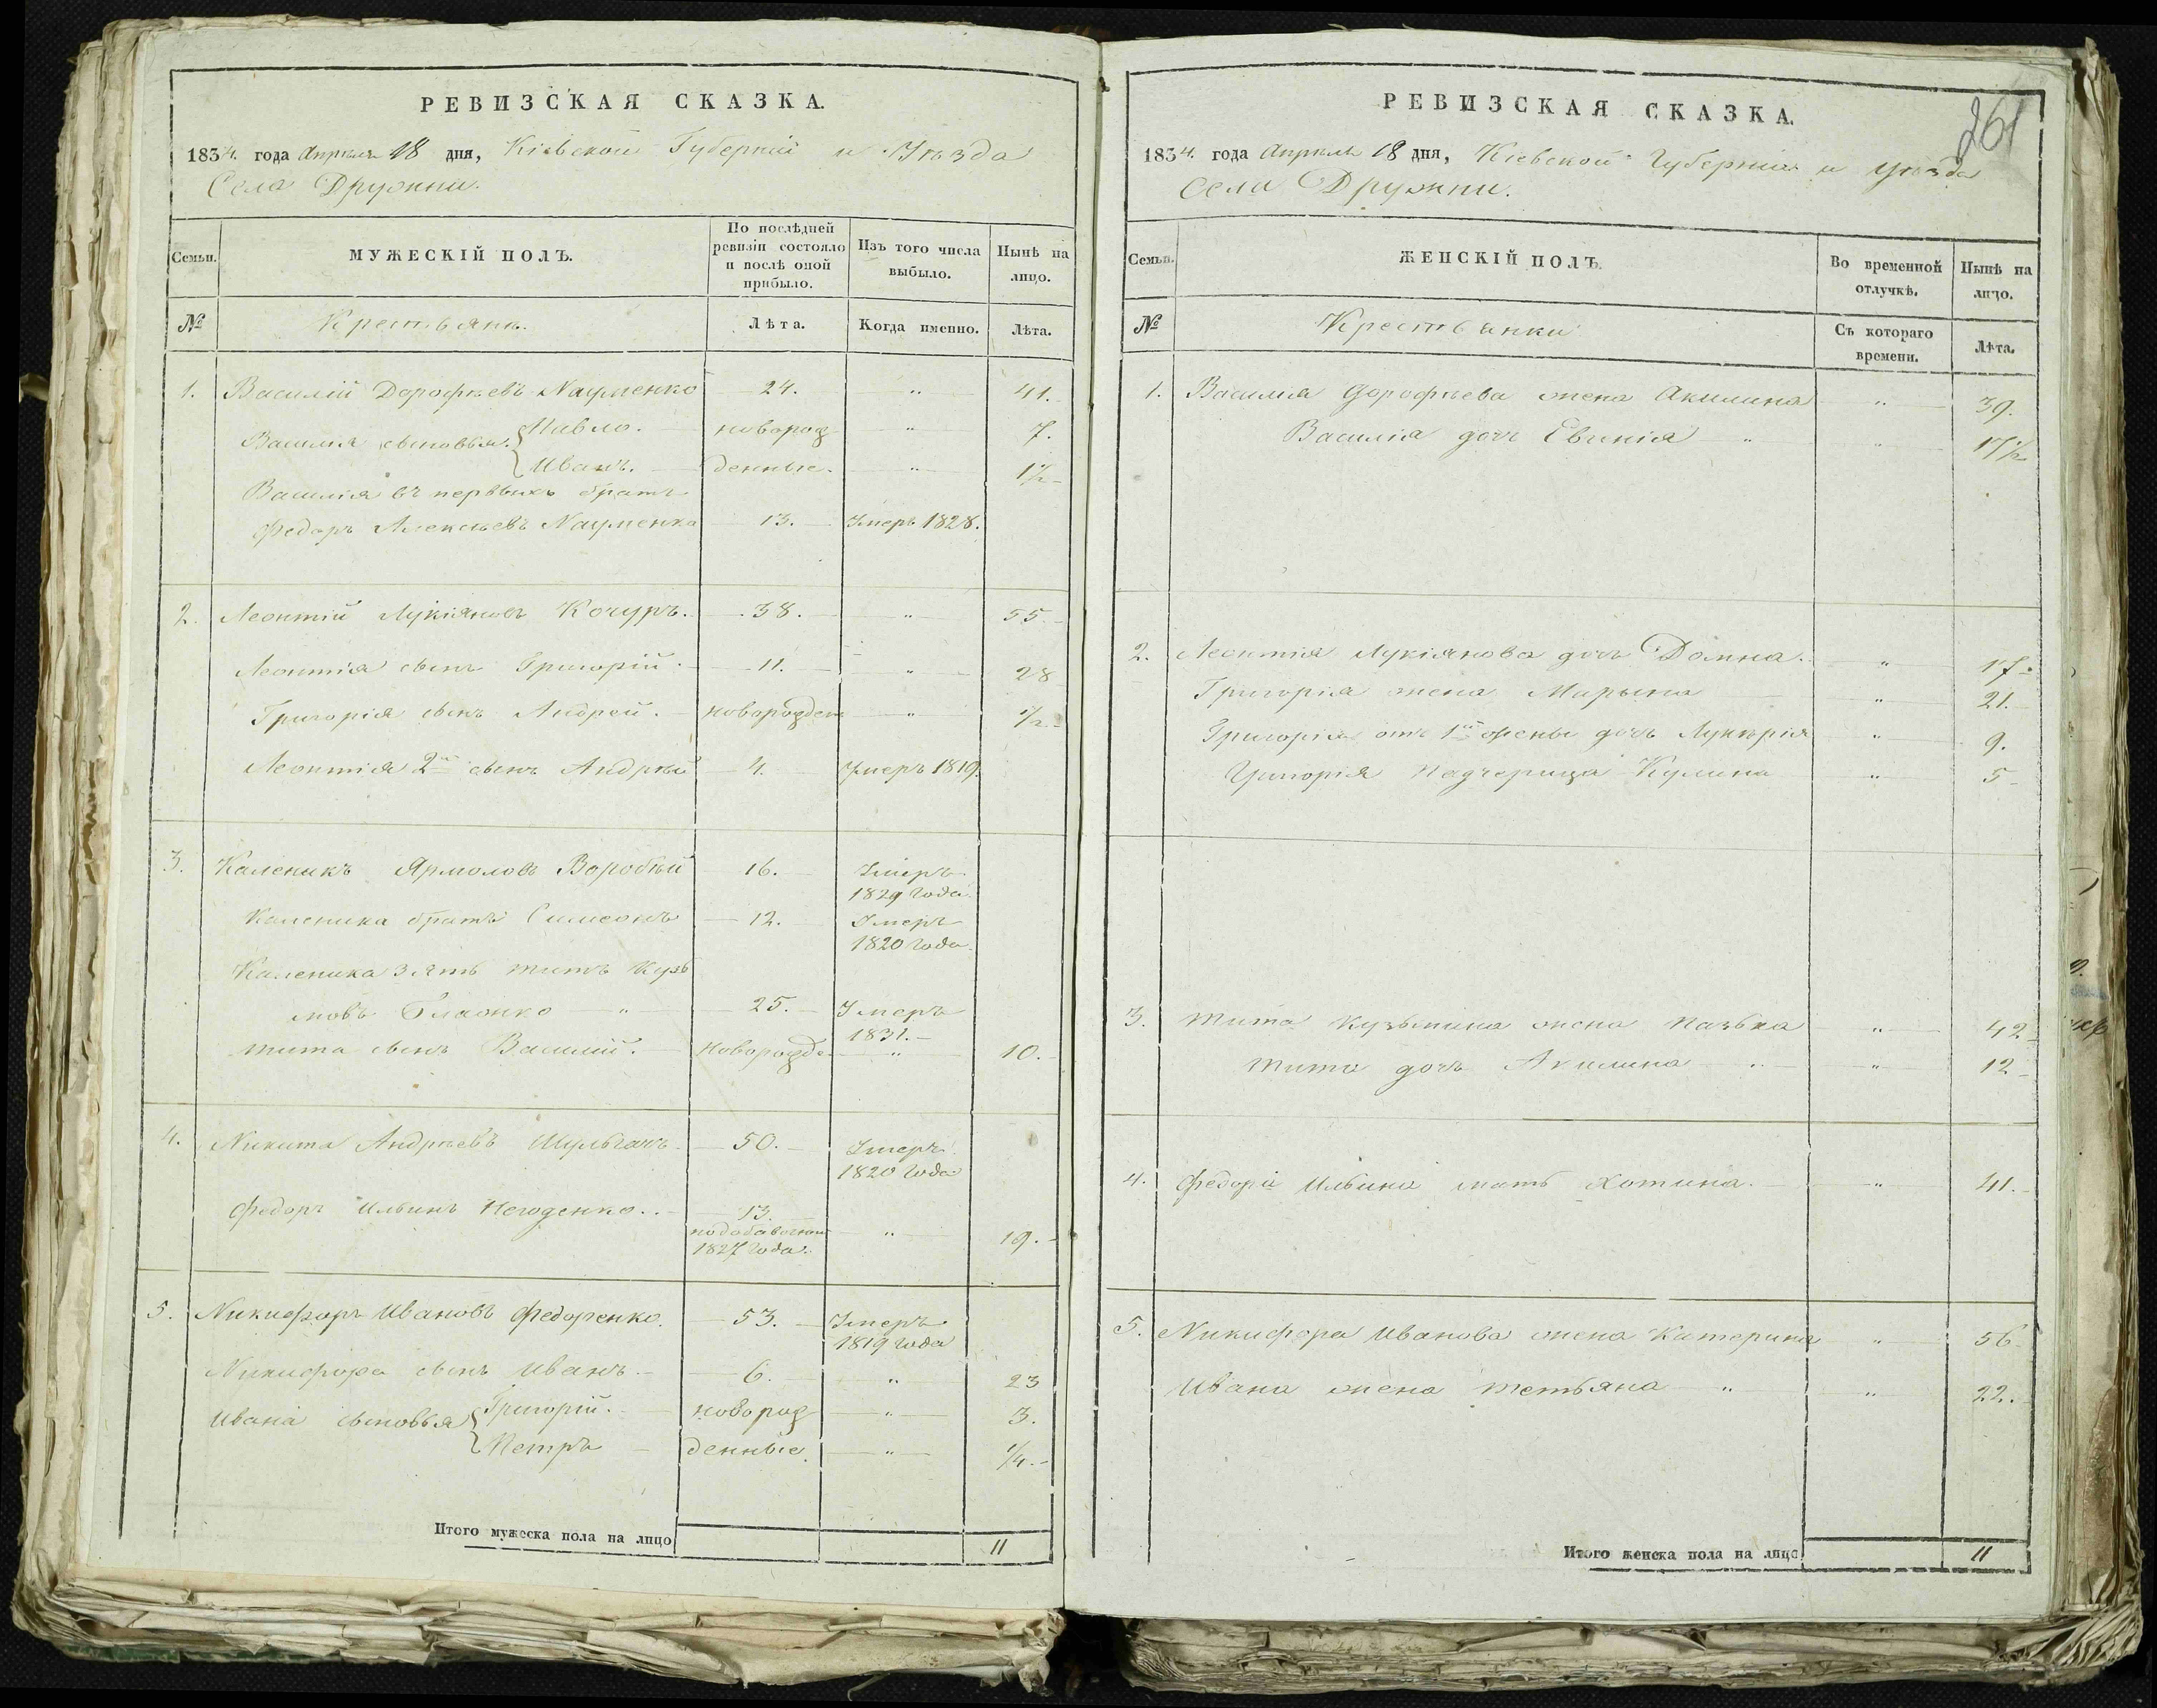 РЕВИЗСКАЯ СКАЗКА.
1834. года Апреля 18 дня, Кіевской Губерніи и Уѣзда
Села Дружни.
Семьи.
МУЖЕСКІЙ ПОЛЪ.
По послѣдней ревизіи состояло и послѣ оной прибыло.
Изъ того числа выбыло.
Нынѣ на лицо.
№
Крестьяне.
Лѣта.
Когда именно.
Лѣта.
1. Василій Дорофѣевъ Науменко 24. " 41.
Василія сыновья { Павло. новорож " 7.
Иванъ. денные. " 1½
Василія въ первыхъ братъ
Федоръ Алексѣевъ Науменко 13. Умеръ 1828.
2. Леонтій Лукіяновъ Кочуръ. 38. " 55
Леонтія сынъ Григорій. 11. " 28
Григорія сынъ Андрей. новорожден " ½
Леонтія 2й сынъ Андрѣй 4. Умеръ 1819.
3. Каленикъ Ярмоловъ Воробѣй 16. Умеръ
1829 года
Каленика братъ Симеонъ 12. Умеръ
1820 года.
Каленика зять Титъ Кузь
мовъ 25. Умеръ
1831.
Тита сынъ Василій. Новорожде " 10.
4. Никита Андрѣевъ Шульганъ 50. Умеръ
1820 года
Федоръ Ильинъ Негоденко. 13.
1827 года. " 19.
5. Никифоръ Ивановъ Федоренко. 53. Умеръ
1819 года
Никифора сынъ Иванъ. 6. " 23
Ивана сыновья { Григорій. новорож " 3.
Петръ денные. " ¼.
Итого мужеска пола на лицо 11
РЕВИЗСКАЯ СКАЗКА.
261
1834. года Апрель 18 дня, Кіевской Губерніи и уѣзда
Села Дружни.
Семьи.
ЖЕНСКІЙ ПОЛЪ.
Во временной отлучкѣ.
Нынѣ на лицо.
№
Крестьянки
Съ котораго времени.
Лѣта.
1. Василія Дорофѣева жена Акилина " 39.
Василія дочь Евгинія " " 17½
2. Леонтія Лукіянова дочь Домна. " 17.
Григорія жена Марьяна " 21.
Григорія отъ 1й жены дочь Лукѣрія " 9.
Григорія падчерица Кулина " 5
3. Тита Кузьмина жена Пазька " 42
Тита дочь Акилина " " 12
4. Федора Ильина мать Хотина. " 41.
5. Никифора Иванова жена Катерина " 56
Ивана жена Тетьяна " " 22.
Итого женска пола на лицо 11